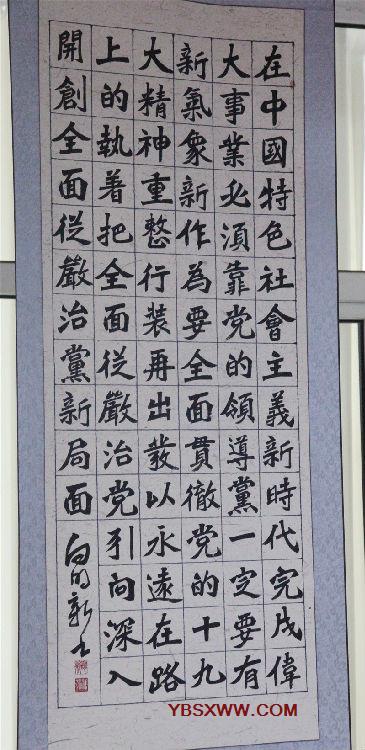 在中國特色社會主義新時代完成偉
大事業必須靠党的領導黨一定要有
新氣象新作為要全面貫徹党的十九
大精神重整行装再出發以永遠在路
上的執著把全面從嚴治党引向深入
開創全面從嚴治黨新局面
YBSXWW.COM